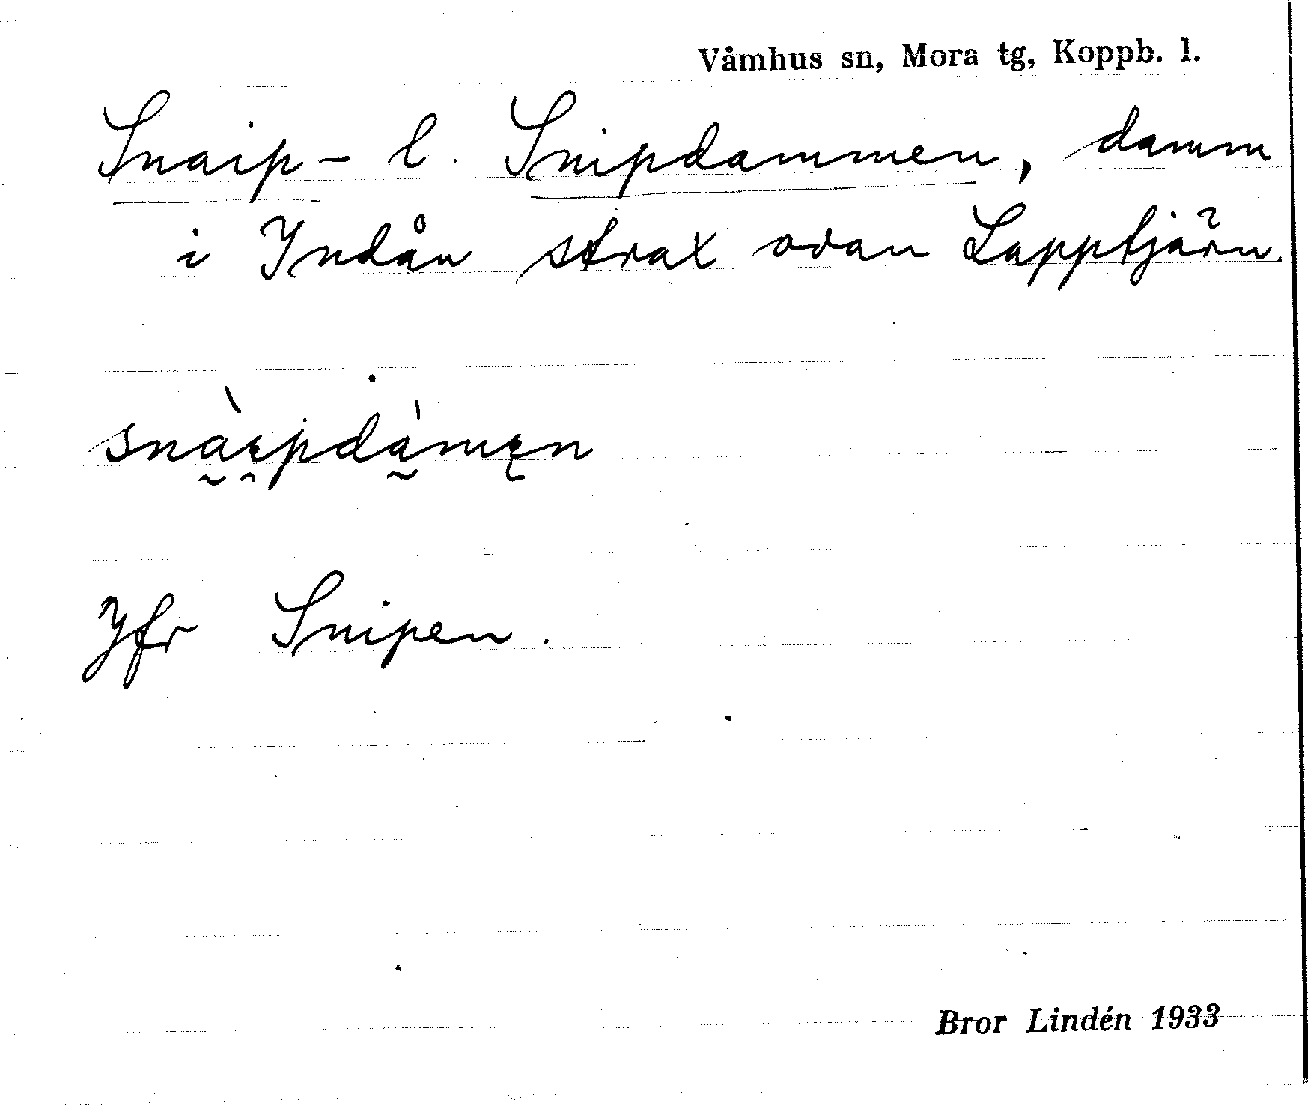 Våmhus sn, Mora tg, Koppb. l.
Snaip- l. Snipdammen, damm
i Indån strax ovan Lapptjärn.
snàipdàmen
Jfr Snipen.
Bror Lindén 1933